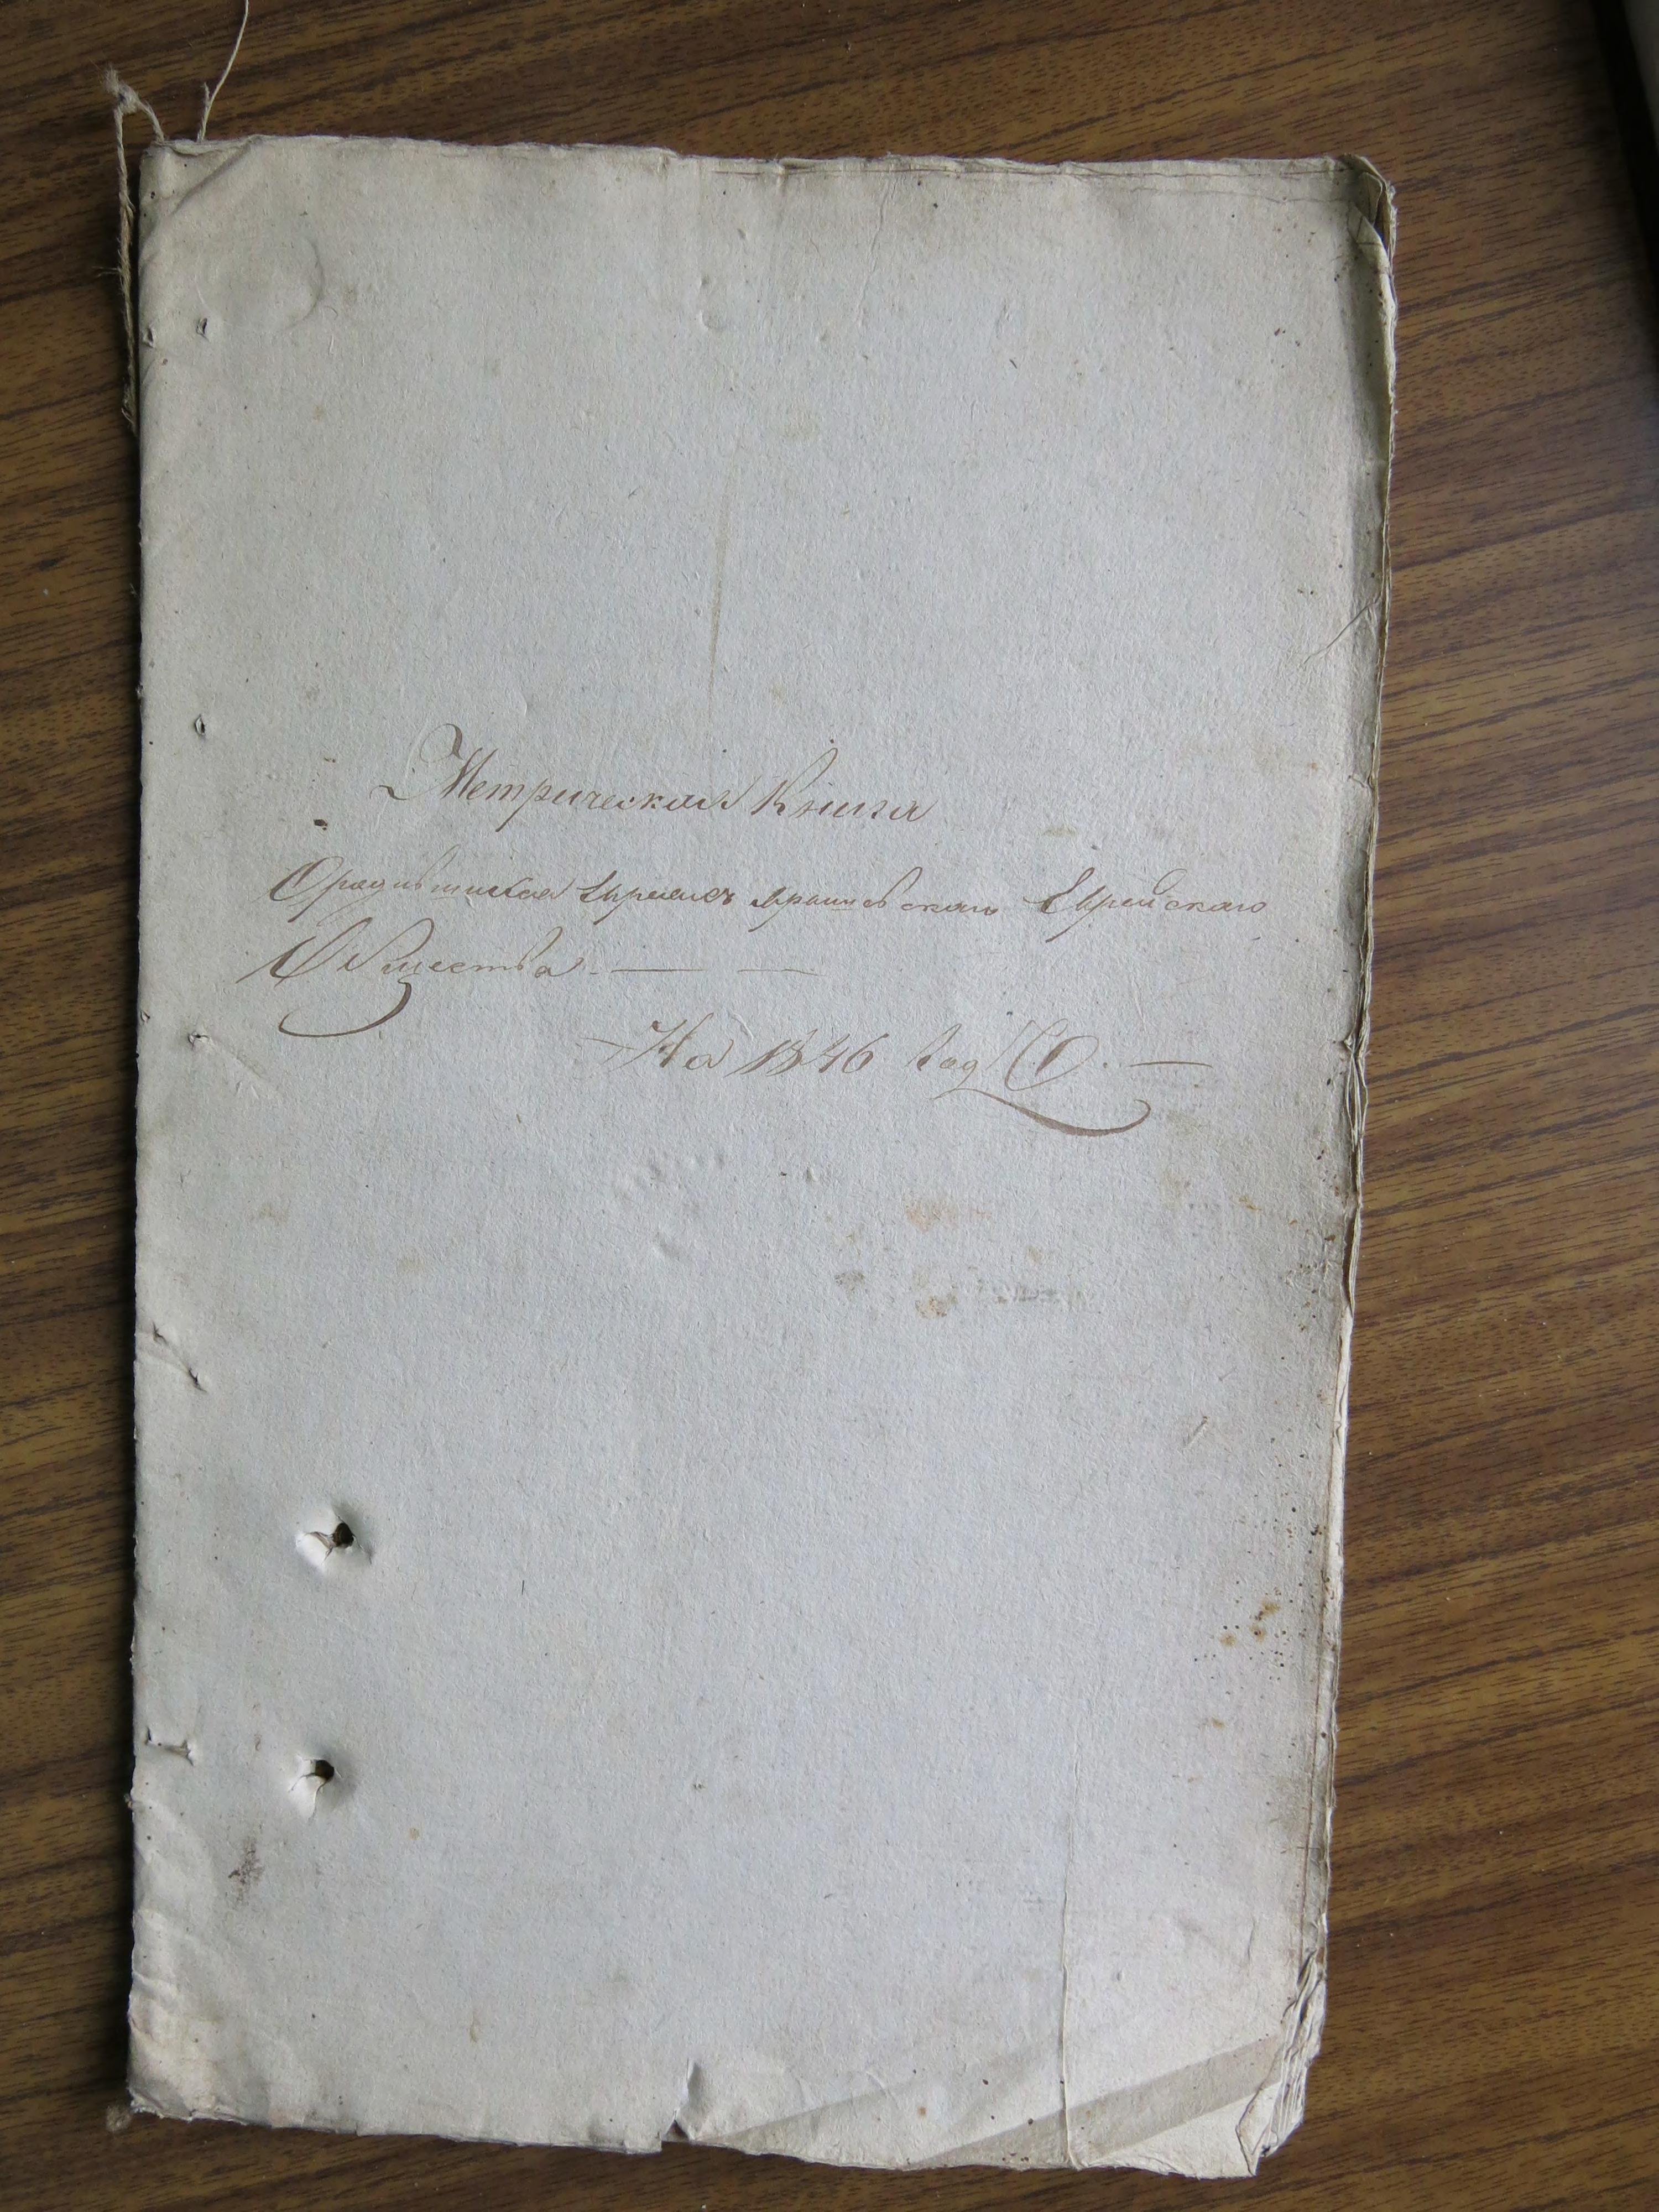 Метрическая Книга
Орадившихся Евреяхъ Еврейскаго
Общества
На 1846 год